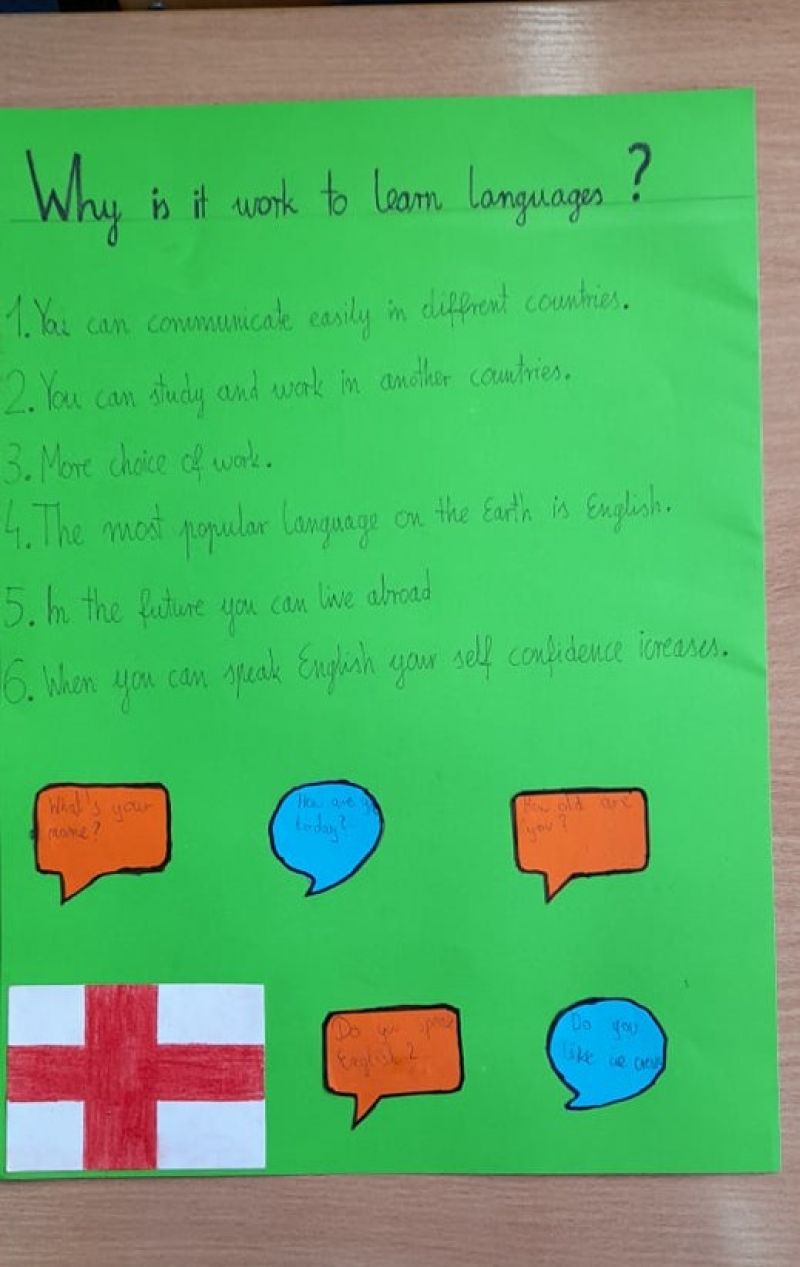 Why is it work to learn languages?
1. You can communicate easily in different countries.
2. You can study and work in another countries.
3. More choice of work.
4. The most popular language on the Earth is English.
5. In the future you can live abroad
6. When you can speak English your self confidence icreases.
What's your
name?
How are
today?
How old are
you?
Do you speak
English?
Do you
like ice cream